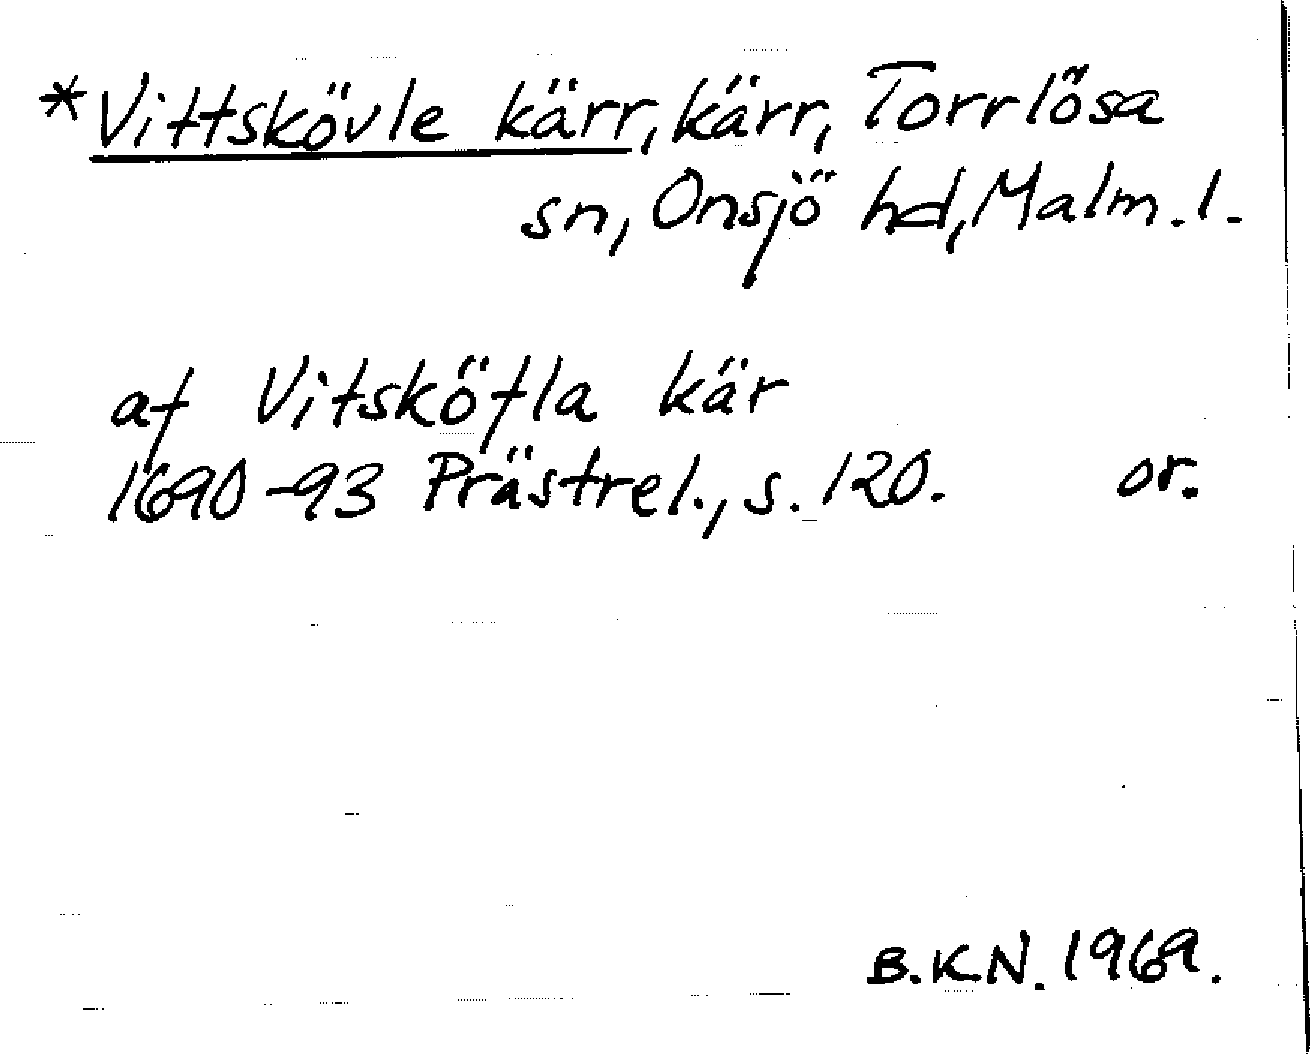 *Vittskövle kärr, kärr, Torrlösa
sn, Onsjö hd, Malm. l.
af Vitsköfla kär
1690-93 Prästrel., s. 120. or.
B.K.N. 1969.